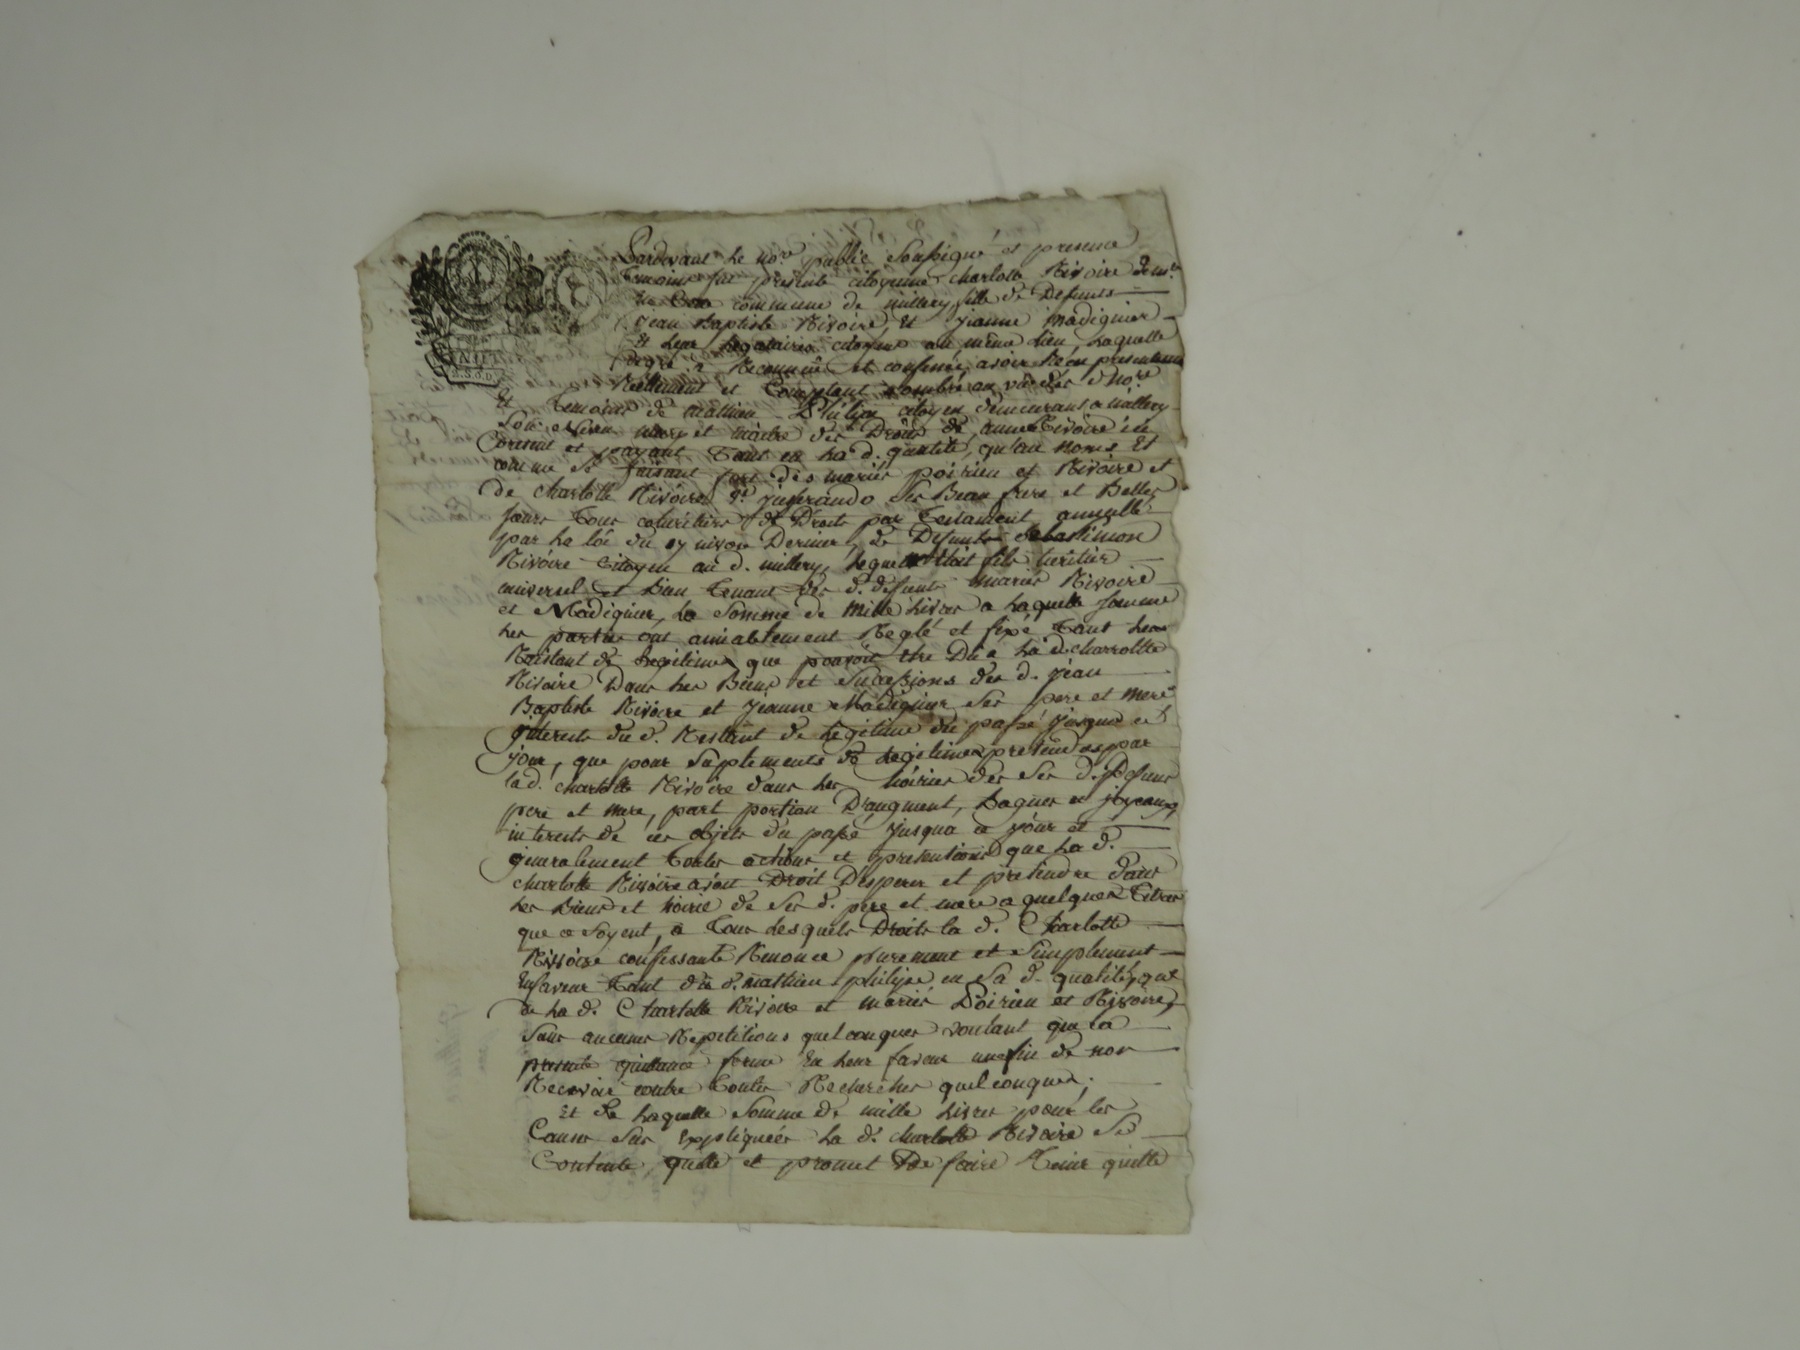 Pardevant le no.re public soussigné et presence
Temoins fut presente citoyenne charlotte Rivoire dem.te
en commune de millery fille de Defunts
jean Baptiste Rivoire, Et jeanne Madiguier
Et leur legataire citoyens au même lieu, Laquelle
degré a Reconnu et confessé avoir Reçu presentement
Réellement et Comptant nombré au vu des d. no.re
Et Temoins de mathieu Philipe citoyen demeurant a millery
mary et maitre des Droits de anne Rivoire ice
present et payant Tant en La d. qualité, qu'au noms Et
comme Se faisant fort des mariés poirieu et Rivoire et
de charlotte Rivoire Ses Beau frere et Belles
soeurs Tous coheritiers de Droits par Testament annullé
par La loi du 17 nivose Dernier, de Defunt Rivoire
Citoyen au d. millery, Lequel étoit fils heritier
universel et Bien Tenant des d. défunts mariés Rivoire
et Madiguier, La Somme de Mille Livres a Laquelle somme
Les parties ont amiablement Reglé et fixé Tant Le
Restant de Legitime que pouvoit être Du a La d. charlotte
Rivoire Dans Les Biens et Successions des d. jean
Baptiste Rivoire et jeanne Madiguier Ses pere et mere
jnterets du d. Restant de Legitime du passé jusqua ce
jour, que pour Suplements de Legitimes pretendus par
la d. charlotte Rivoire dans Les hoiries des Ses d. Defunts
pere et mere, part portion D'augment, Bagues et joyeaux,
interets de ces objets du passé jusqua ce jour et
generalement Toutes actions et pretentions que La d.
charlotte Rivoire avoit Droit D'esperer et pretendre dans
Les Biens et hoirie de Ses d. pere et mere a quelques Titres
que ce Soyent, a Tous Lesquels Droits la d. Charlotte
Rivoire confessante Renonce purement et Simplement
En faveur Tant du d. mathieu philipe en Sa d. qualité, que
de La d. Charlotte Rivoire et mariés Poirieu et Rivoire,
Sans aucunes Repetitions quelconques voulant que la
presente quittance forme En Leur faveur une fin de non
Recevoir contre Toutes Recherches quelconques;
Et de Laquelle Somme de mille Livres pour les
Causes Sus Expliquées La d. charlotte Rivoire Se
Contente, quitte et promet De faire Tenir quitte